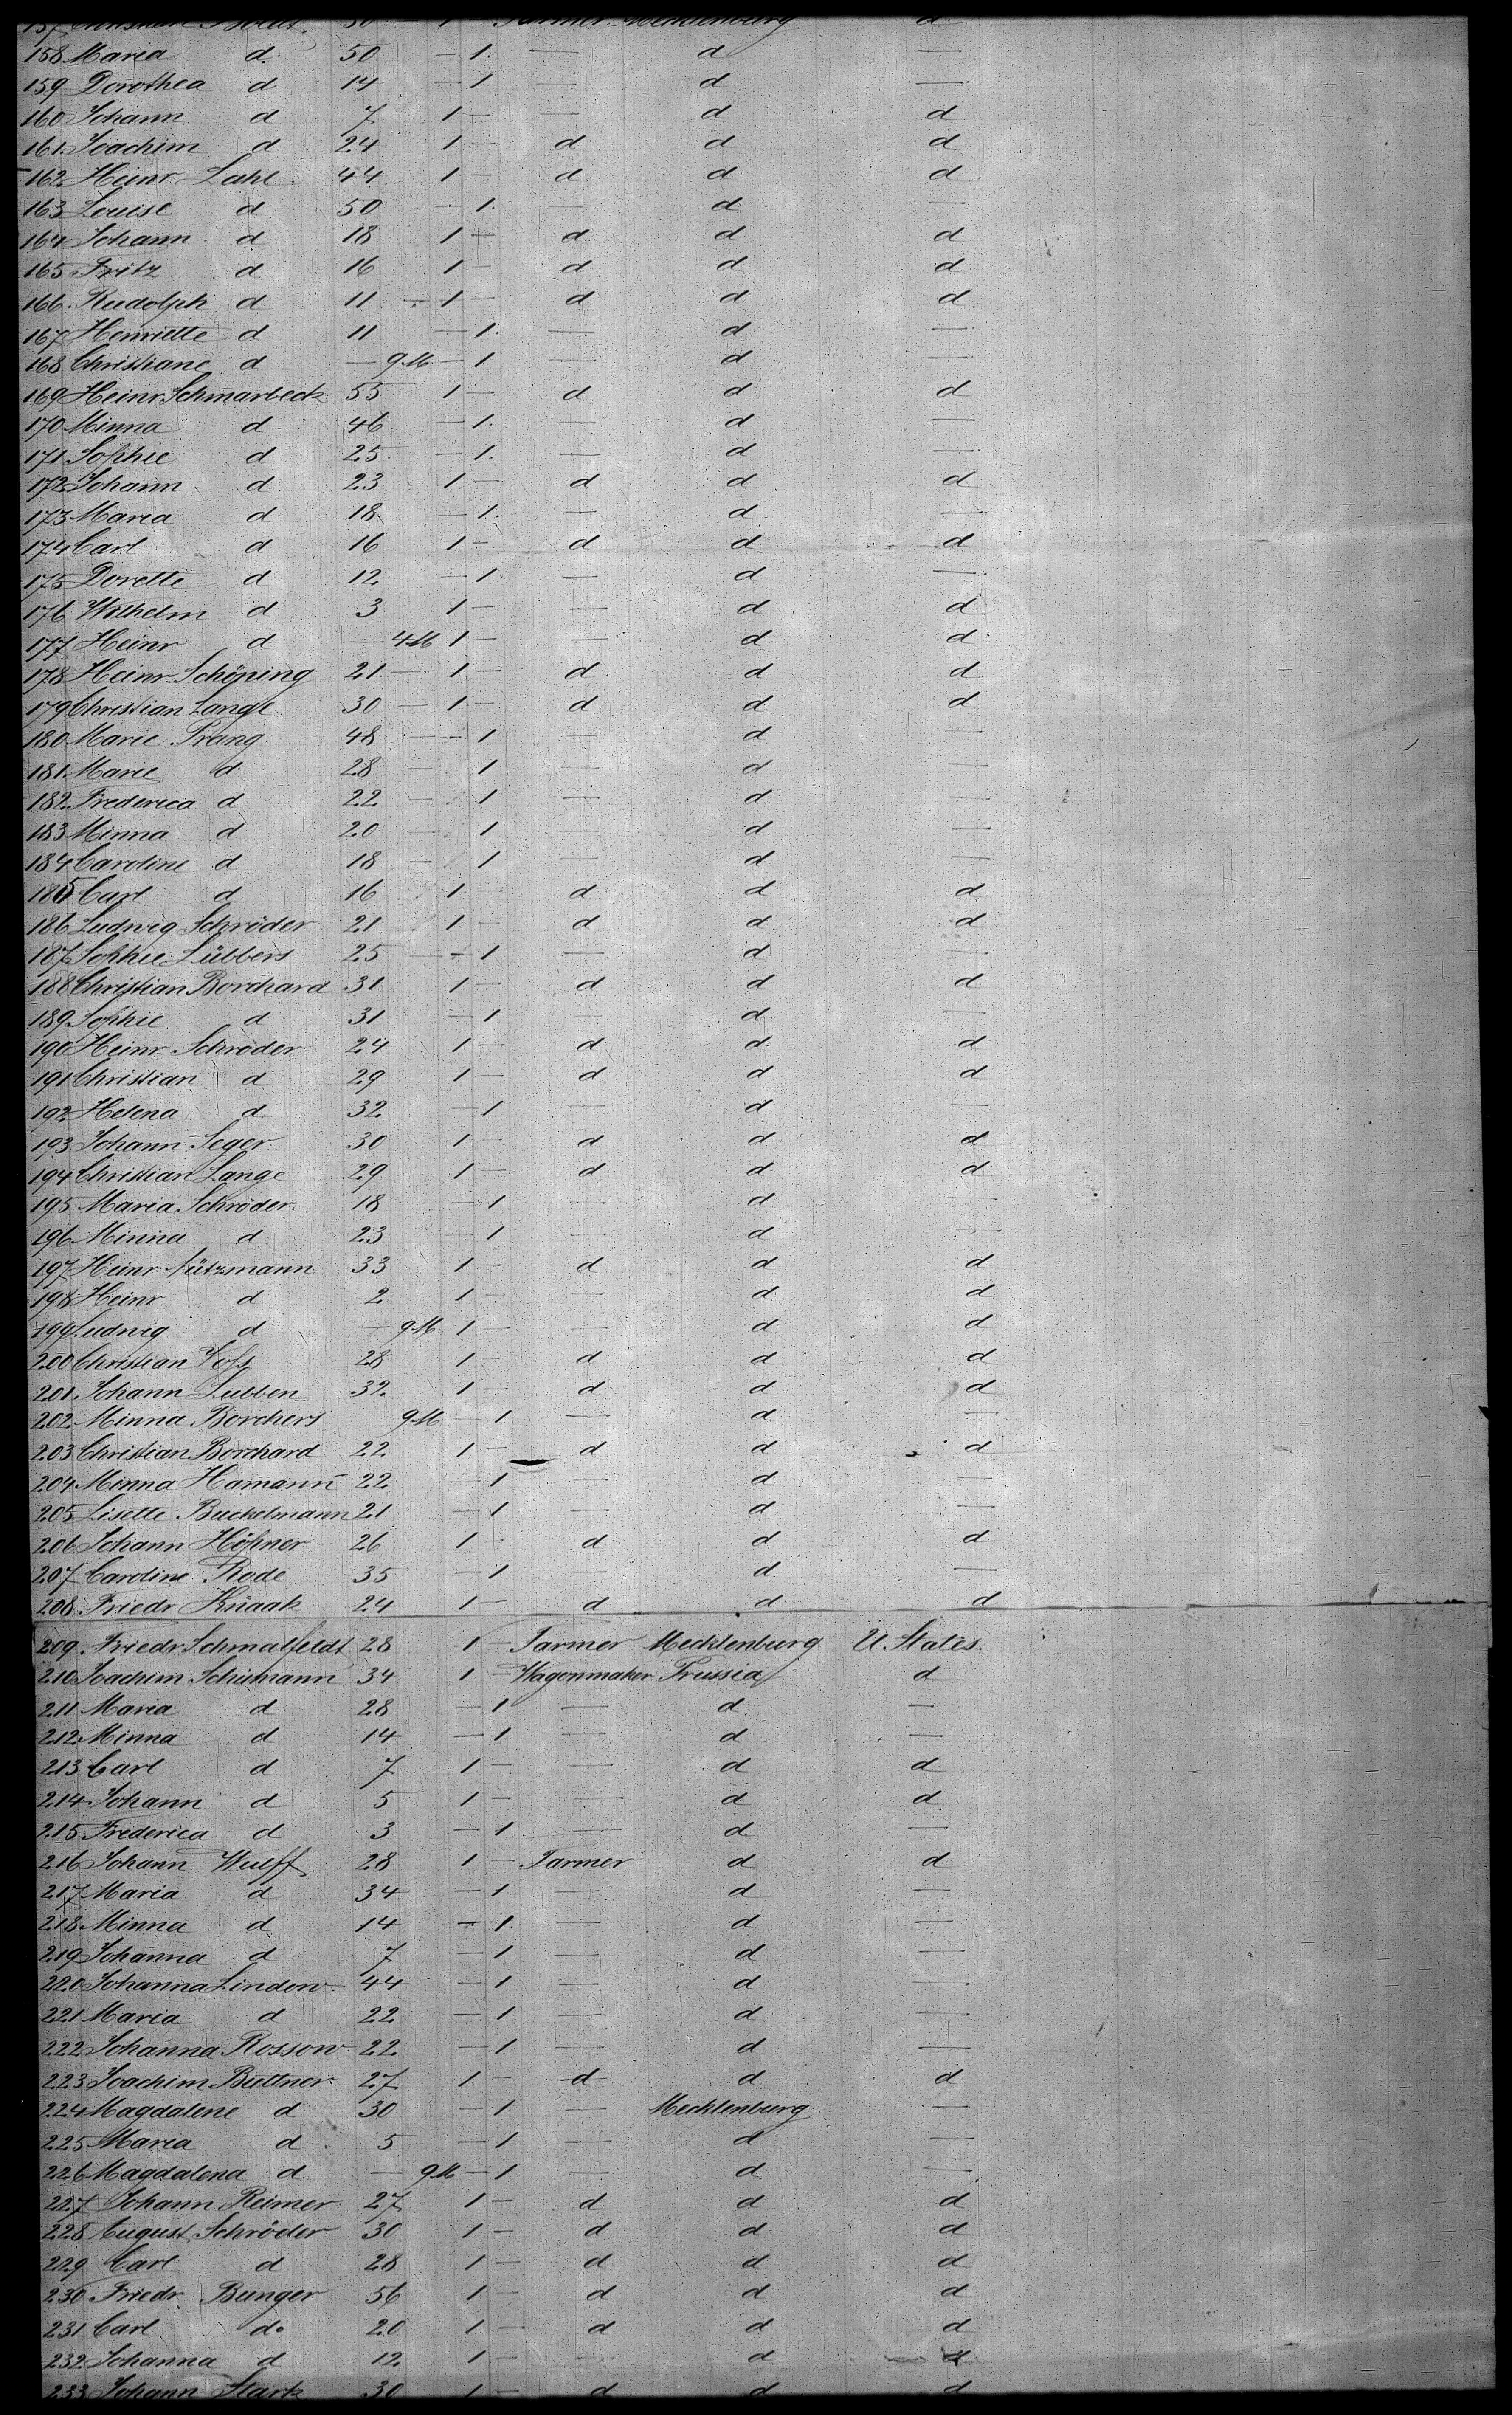 157 Christian Boldt 50 — 1 Farmer Mecklenburg d
158 Maria d 50 — 1 — d —
159 Dorothea d 14 — 1 — d —
160 Johann d 7 1 — — d d
161 Joachim d 24 1 — d d d
162 Heinr Lahl 44 1 — d d d
163 Louise d 50 — 1 — d —
164 Johann d 18 1 — d d d
165 Fritz d 16 1 — d d d
166 Rudolph d 11 — 1 — d d d
167 Henriette d 11 — 1 — d —
168 Christiane d — 9M — 1 — d —
169 Heinr Schmarbeck 55 1 — d d d
170 Minna d 46 — 1 — d —
171 Sophie d 25 — 1 — d —
172 Johann d 23 1 — d d d
173 Maria d 18 — 1 — d —
174 Carl d 16 1 — d d d
175 Dorette d 12 — 1 — d —
176 Wilhelm d 3 1 — — d d
177 Heinr d — 4M 1 — — d d
178 Heinr Schöping 21 — 1 — d d d
179 Christian Lange 30 — 1 — d d d
180 Marie Prang 48 — — 1 — d —
181 Marie d 28 — 1 — d —
182 Frederica d 22 — 1 — d —
183 Minna d 20 — 1 — d —
184 Caroline d 18 — 1 — d —
185 Carl d 16 1 d d d
186 Ludwig Schröder 21 1 — d d d
187 Sophie Lübbers 25 — — 1 — d —
188 Christian Borchard 31 1 — d d d
189 Sophie d 31 — 1 — d —
190 Heinr Schröder 24 1 — d d d
191 Christian d 29 1 — d d d
192 Helena d 32 — 1 — d —
193 Johann Seger 30 1 — d d d
194 Christian Lange 29 1 — d d d
195 Maria Schröder 18 — 1 — d —
196 Minna d 23 — 1 — d —
197 Heinr Nützmann 33 1 — d d d
198 Heinr d 2 1 — — d d
199 Ludwig d — 9M 1 — — d d
200 Christian Voss 28 1 — d d d
201 Johann Lubben 32 1 — d d d
202 Minna Borchers 9M — 1 — d —
203 Christian Borchard 22 1 — d d d
204 Minna Hamann 22 — 1 — d —
205 Lisette Buckelmann 21 — 1 — d —
206 Johann Höpner 26 1 d d d
207 Caroline Rode 35 — 1 d —
208 Friedr Knaak 24 1 — d d d
209 Friedr Schmalfeldt 28 1 — Farmer Mecklenburg U. States
210 Joachim Schumann 34 1 — Wagenmaker Prussia d
211 Maria d 28 — 1 — d —
212 Minna d 14 — 1 — d —
213 Carl d 7 1 — — d d
214 Johann d 5 1 — — d d
215 Frederica d 3 — 1 — d —
216 Johann Wulff 28 1 — Farmer d d
217 Maria d 34 — 1 — d —
218 Minna d 14 — 1 — d —
219 Johanna d 7 — 1 — d —
220 Johanna Lindow 44 — 1 — d —
221 Maria d 22 — 1 — d —
222 Johanna Rossow 22 — 1 — d —
223 Joachim Buttner 27 1 — d d d
224 Magdalene d 30 — 1 — Mecklenburg —
225 Maria d 5 — 1 — d —
226 Magdalena d — 9M — 1 — d —
227 Johann Reimer 27 1 — d d d
228 August Schröder 30 1 — d d d
229 Carl d 28 1 — d d d
230 Friedr Bunger 56 1 — d d d
231 Carl do 20 1 — d d d
232 Johanna d 12 1 — — d d
233 Johann Stark 30 1 — d d d